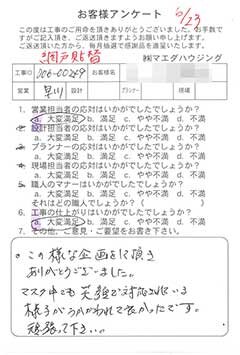 お客様アンケート
6/23
この度は工事のご用命を頂きありがとうございました。お手数で
すがご記入頂き、ご返送頂きますようお願い申し上げます。
ご返送頂いた方から、毎月抽選で感謝品を進呈いたします。
網戸貼替
㈱マエダハウジング
工事ID 006-00259 お客様名
営業 早川 設計 プランナー 現場
1. 営業担当者の応対はいかがでしたでしょうか?
a. 大変満足 b. 満足 c. やや不満 d. 不満
2. 設計担当者の応対はいかがでしたでしょうか?
a. 大変満足 b. 満足 c. やや不満 d. 不満
3. プランナーの応対はいかがでしたでしょうか?
a. 大変満足 b. 満足 c. やや不満 d. 不満
4. 現場担当者の応対はいかがでしたでしょうか?
a. 大変満足 b. 満足 c. やや不満 d. 不満
5. 職人のマナーはいかがでしたでしょうか?
a. 大変満足 b. 満足 c. やや不満 d. 不満
それはどの職人でしょうか?( )
6. 工事の仕上がりはいかがでしたでしょうか?
a. 大変満足 b. 満足 c. やや不満 d. 不満
7. その他、ご意見・ご要望をお書き下さい。
・この様な企画をして頂き
ありがとうございました。
マスク中でも笑顔で対応されている
様子がうかがわれて良かったです。
頑張って下さい。